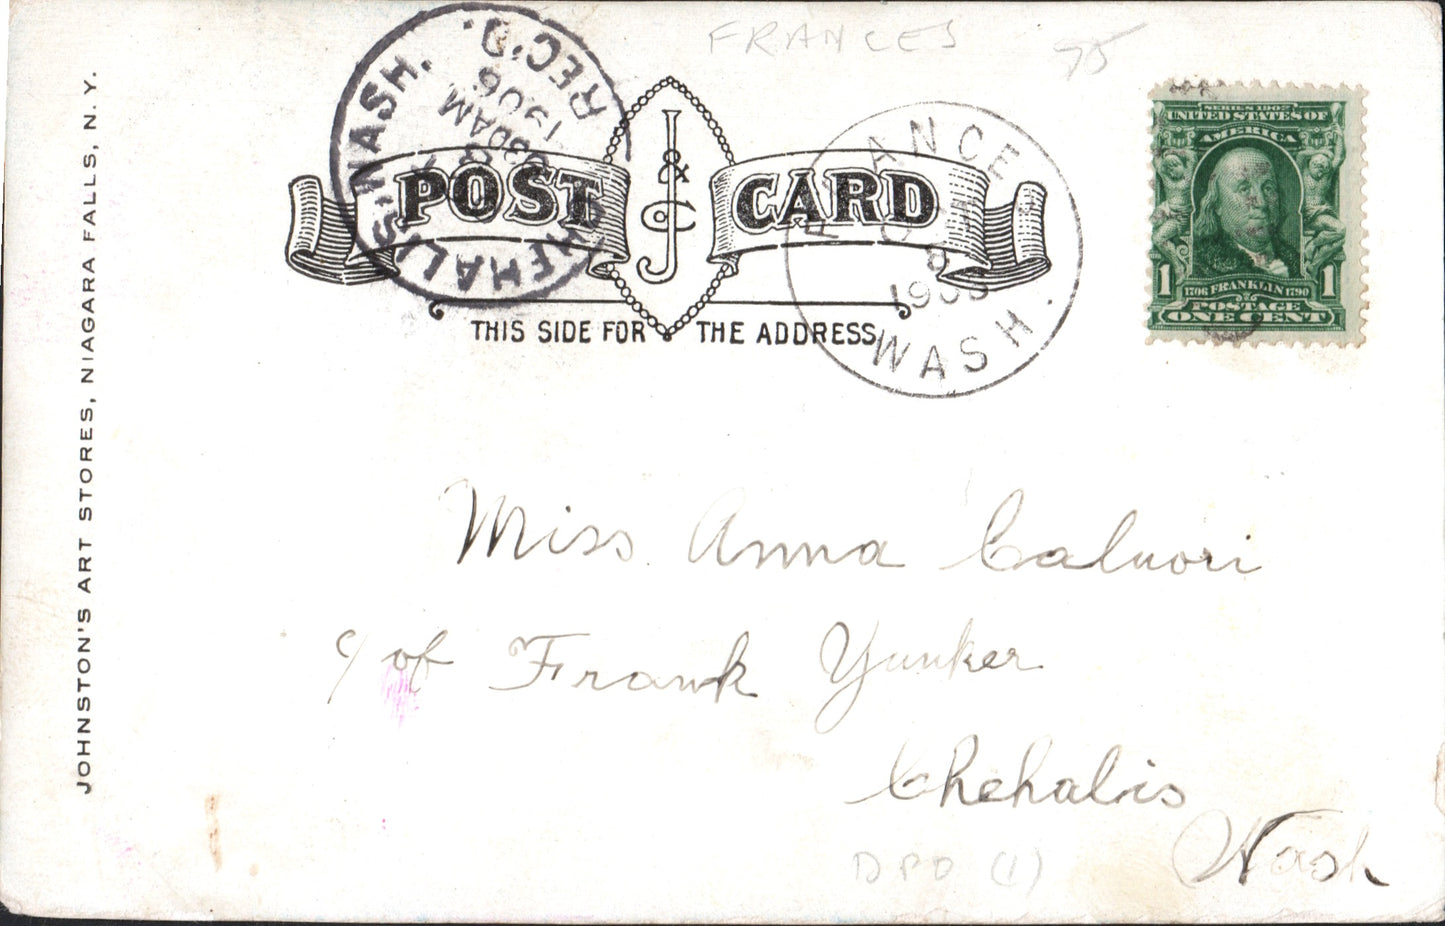 FRANCES 75
CHEHALIS, WASH. REC'D.
AM
1906
FRANCES
JUN
8
1906
WASH.
SERIES 1902
UNITED STATES OF
AMERICA
1 1706 FRANKLIN 1790 1
POSTAGE
ONE CENT
POST J & Co CARD
THIS SIDE FOR THE ADDRESS
JOHNSTON'S ART STORES, NIAGARA FALLS, N. Y.
Miss Anna Caluori
c/of Frank Yunker
Chehalis
Wash
DPO (1)